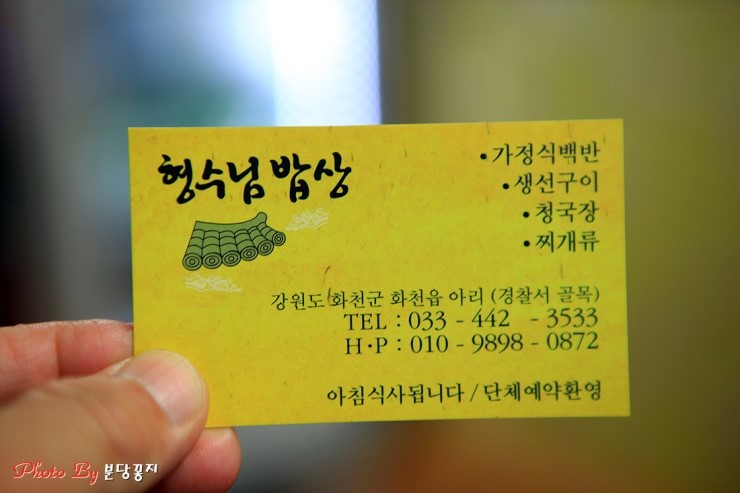 형수님 밥상
• 가정식백반
• 생선구이
• 청국장
• 찌개류
강원도 화천군 화천읍 아리 (경찰서 골목)
TEL : 033 - 442 - 3533
H·P : 010 - 9898 - 0872
아침식사됩니다 / 단체예약환영
Photo By 분당꽁지